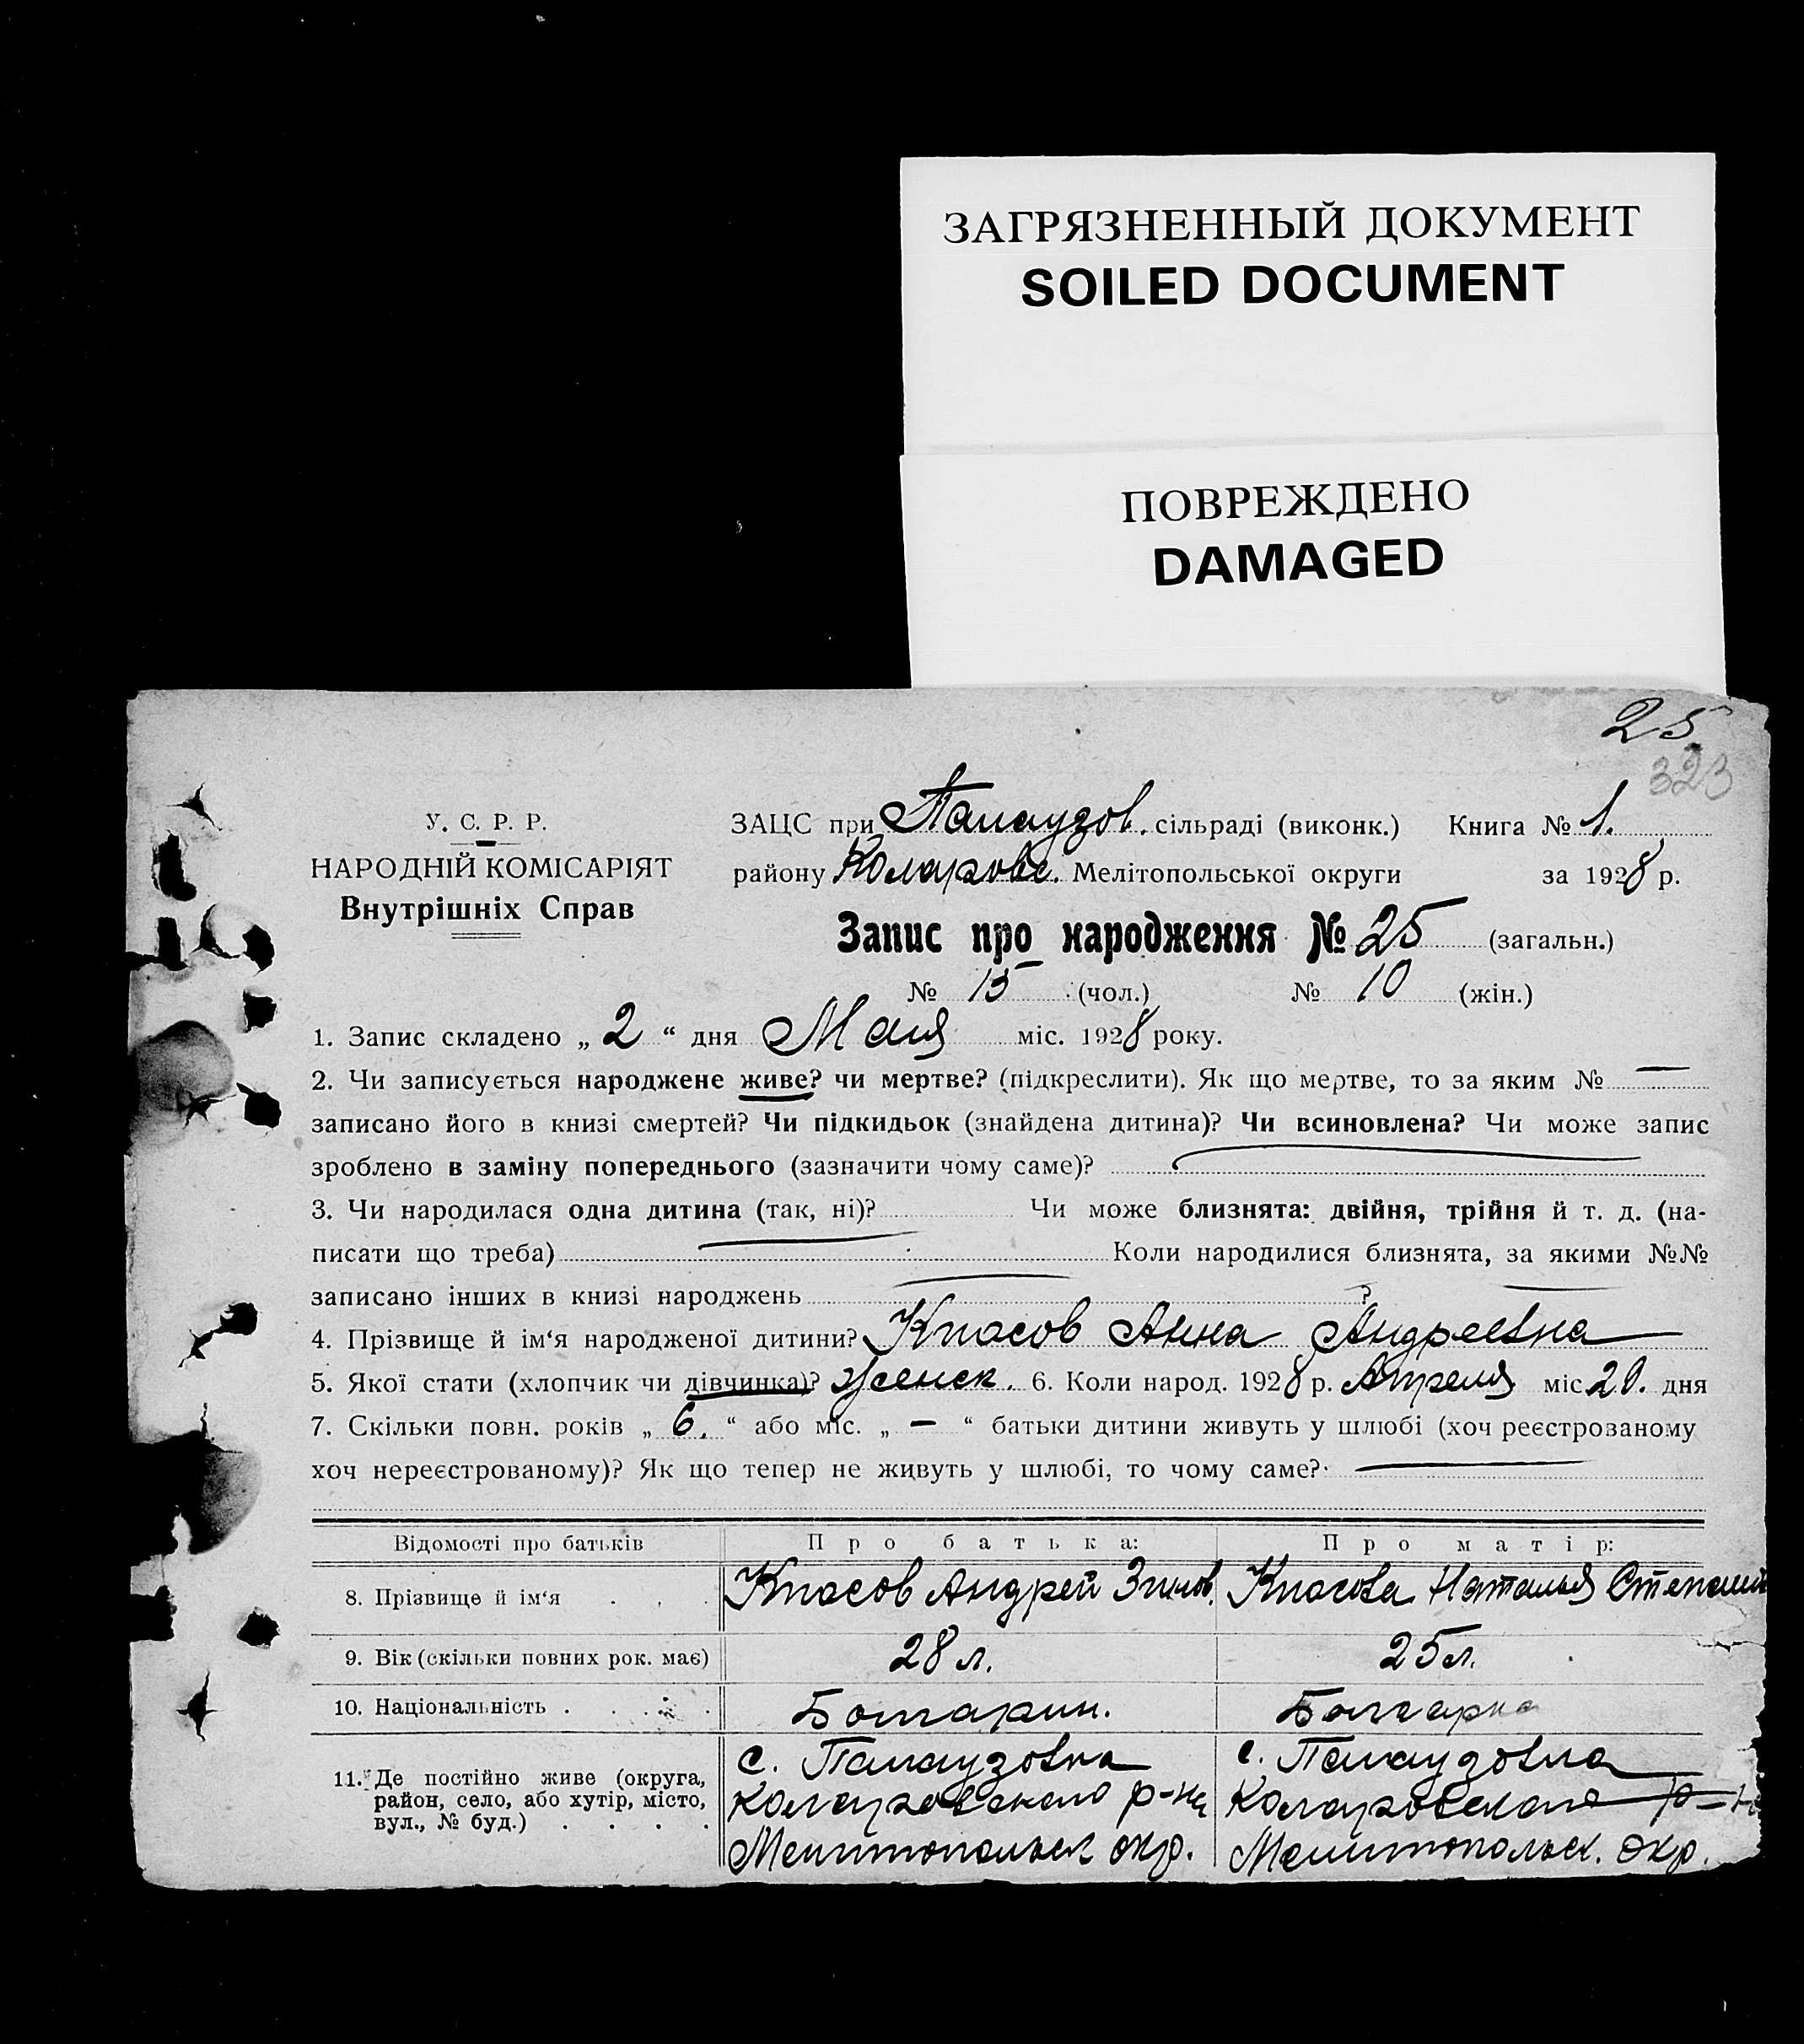 ЗАГРЯЗНЕННЫЙ ДОКУМЕНТ
SOILED DOCUMENT
ПОВРЕЖДЕНО
DAMAGED
25
323
У. С. Р. Р.
НАРОДНІЙ КОМІСАРІЯТ
Внутрішніх Справ
ЗАЦС при Палаузов. сільраді (виконк.) Книга № 1.
району Коларовс. Мелітопольської округи за 1928 р.
Запис про народження № 25 (загальн.)
№ 15 (чол.) № 10 (жін.)
1. Запис складено „ 2 “ дня Мая міс. 1928 року.
2. Чи записується народжене живе? чи мертве? (підкреслити). Як що мертве, то за яким № —
записано його в книзі смертей? Чи підкидьок (знайдена дитина)? Чи всиновлена? Чи може запис
зроблено в заміну попереднього (зазначити чому саме)?
3. Чи народилася одна дитина (так, ні)? Чи може близнята: двійня, трійня й т. д. (на-
писати що треба) Коли народилися близнята, за якими №№
записано інших в книзі народжень ?
4. Прізвище й ім‘я народженої дитини? Кпасов Анна Андреевна
5. Якої стати (хлопчик чи дівчинка)? женск. 6. Коли народ. 1928 р. Апреля міс. 20. дня
7. Скільки повн. років „ 6. “ або міс. „ — “ батьки дитини живуть у шлюбі (хоч реєстрованому
хоч нереєстрованому)? Як що тепер не живуть у шлюбі, то чому саме? —
Відомості про батьків Про батька: Про матір:
8. Прізвище й ім‘я Кпасов Андрей Кпасова Наталья
9. Вік (скільки повних рок. має) 28 л. 25 л.
10. Національність Болгарин. Болгарка
11. Де постійно живе (округа, район, село, або хутір, місто, вул., № буд.)
с. Палаузовка с. Палаузовка
Коларовского р-на Коларовского р-н
Мелитопольск окр. Мелитопольск. окр.